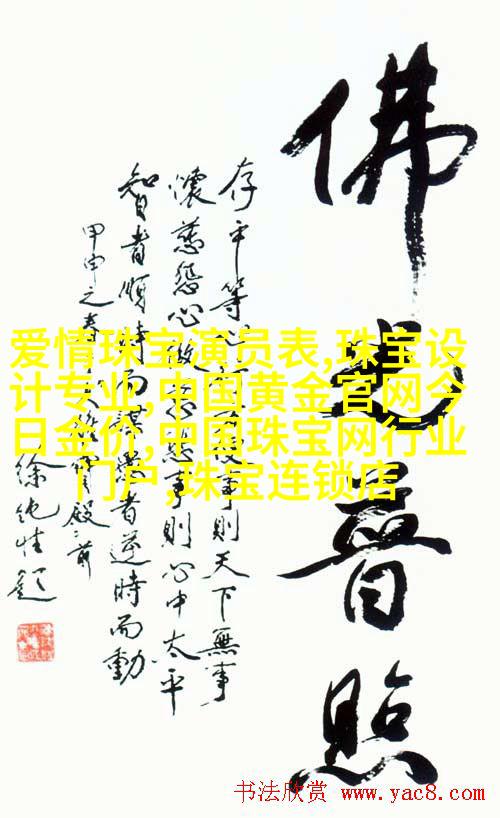 佛光普照
存平等心
事則天下無事
懷慈悲心做
事則心中太平
智者順時而謀愚者逆時而動
甲申之春
殿前
徐純性題
爱情珠宝演员表,珠宝设
计专业,中国黄金官网今
日金价,中国珠宝网行业
门户,珠宝连锁店
书法欣赏 www.yac8.com